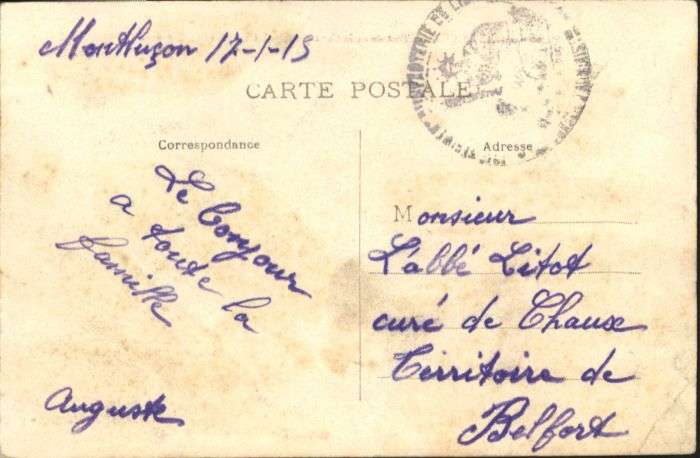 Montluçon 17-1-15
CARTE POSTALE
Correspondance
Adresse
Le bonjour
a toute la
famille
Auguste
Monsieur
L'abbé Litot
curé de Chaux
Térritoire de
Belfort